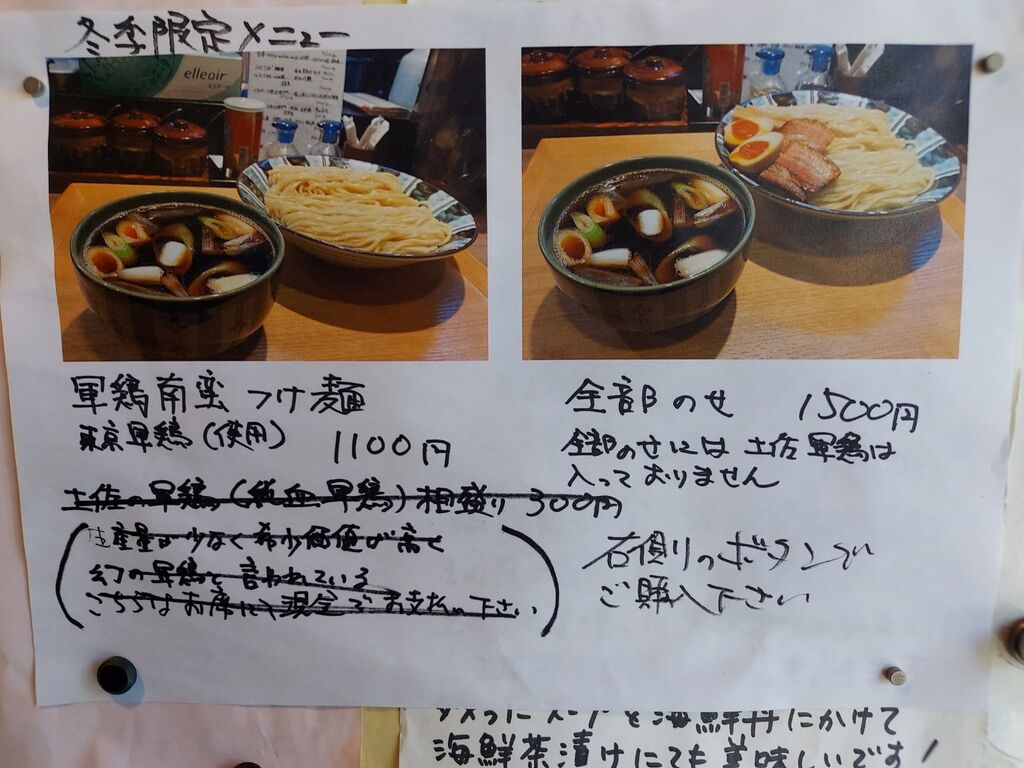 冬季限定メニュー
elleair
軍鶏南蛮つけ麺
東京軍鶏(使用) 1100円
土佐の軍鶏(純血軍鶏)相盛り 300円
生産量が少なく希少価値が高く
幻の軍鶏と言われている
こちらはお席にて現金でお支払い下さい
全部のせ 1500円
全部のせには土佐軍鶏は
入っておりません
右側のボタンで
ご購入下さい
スープを海鮮丼にかけて
海鮮茶漬けにても美味しいです!